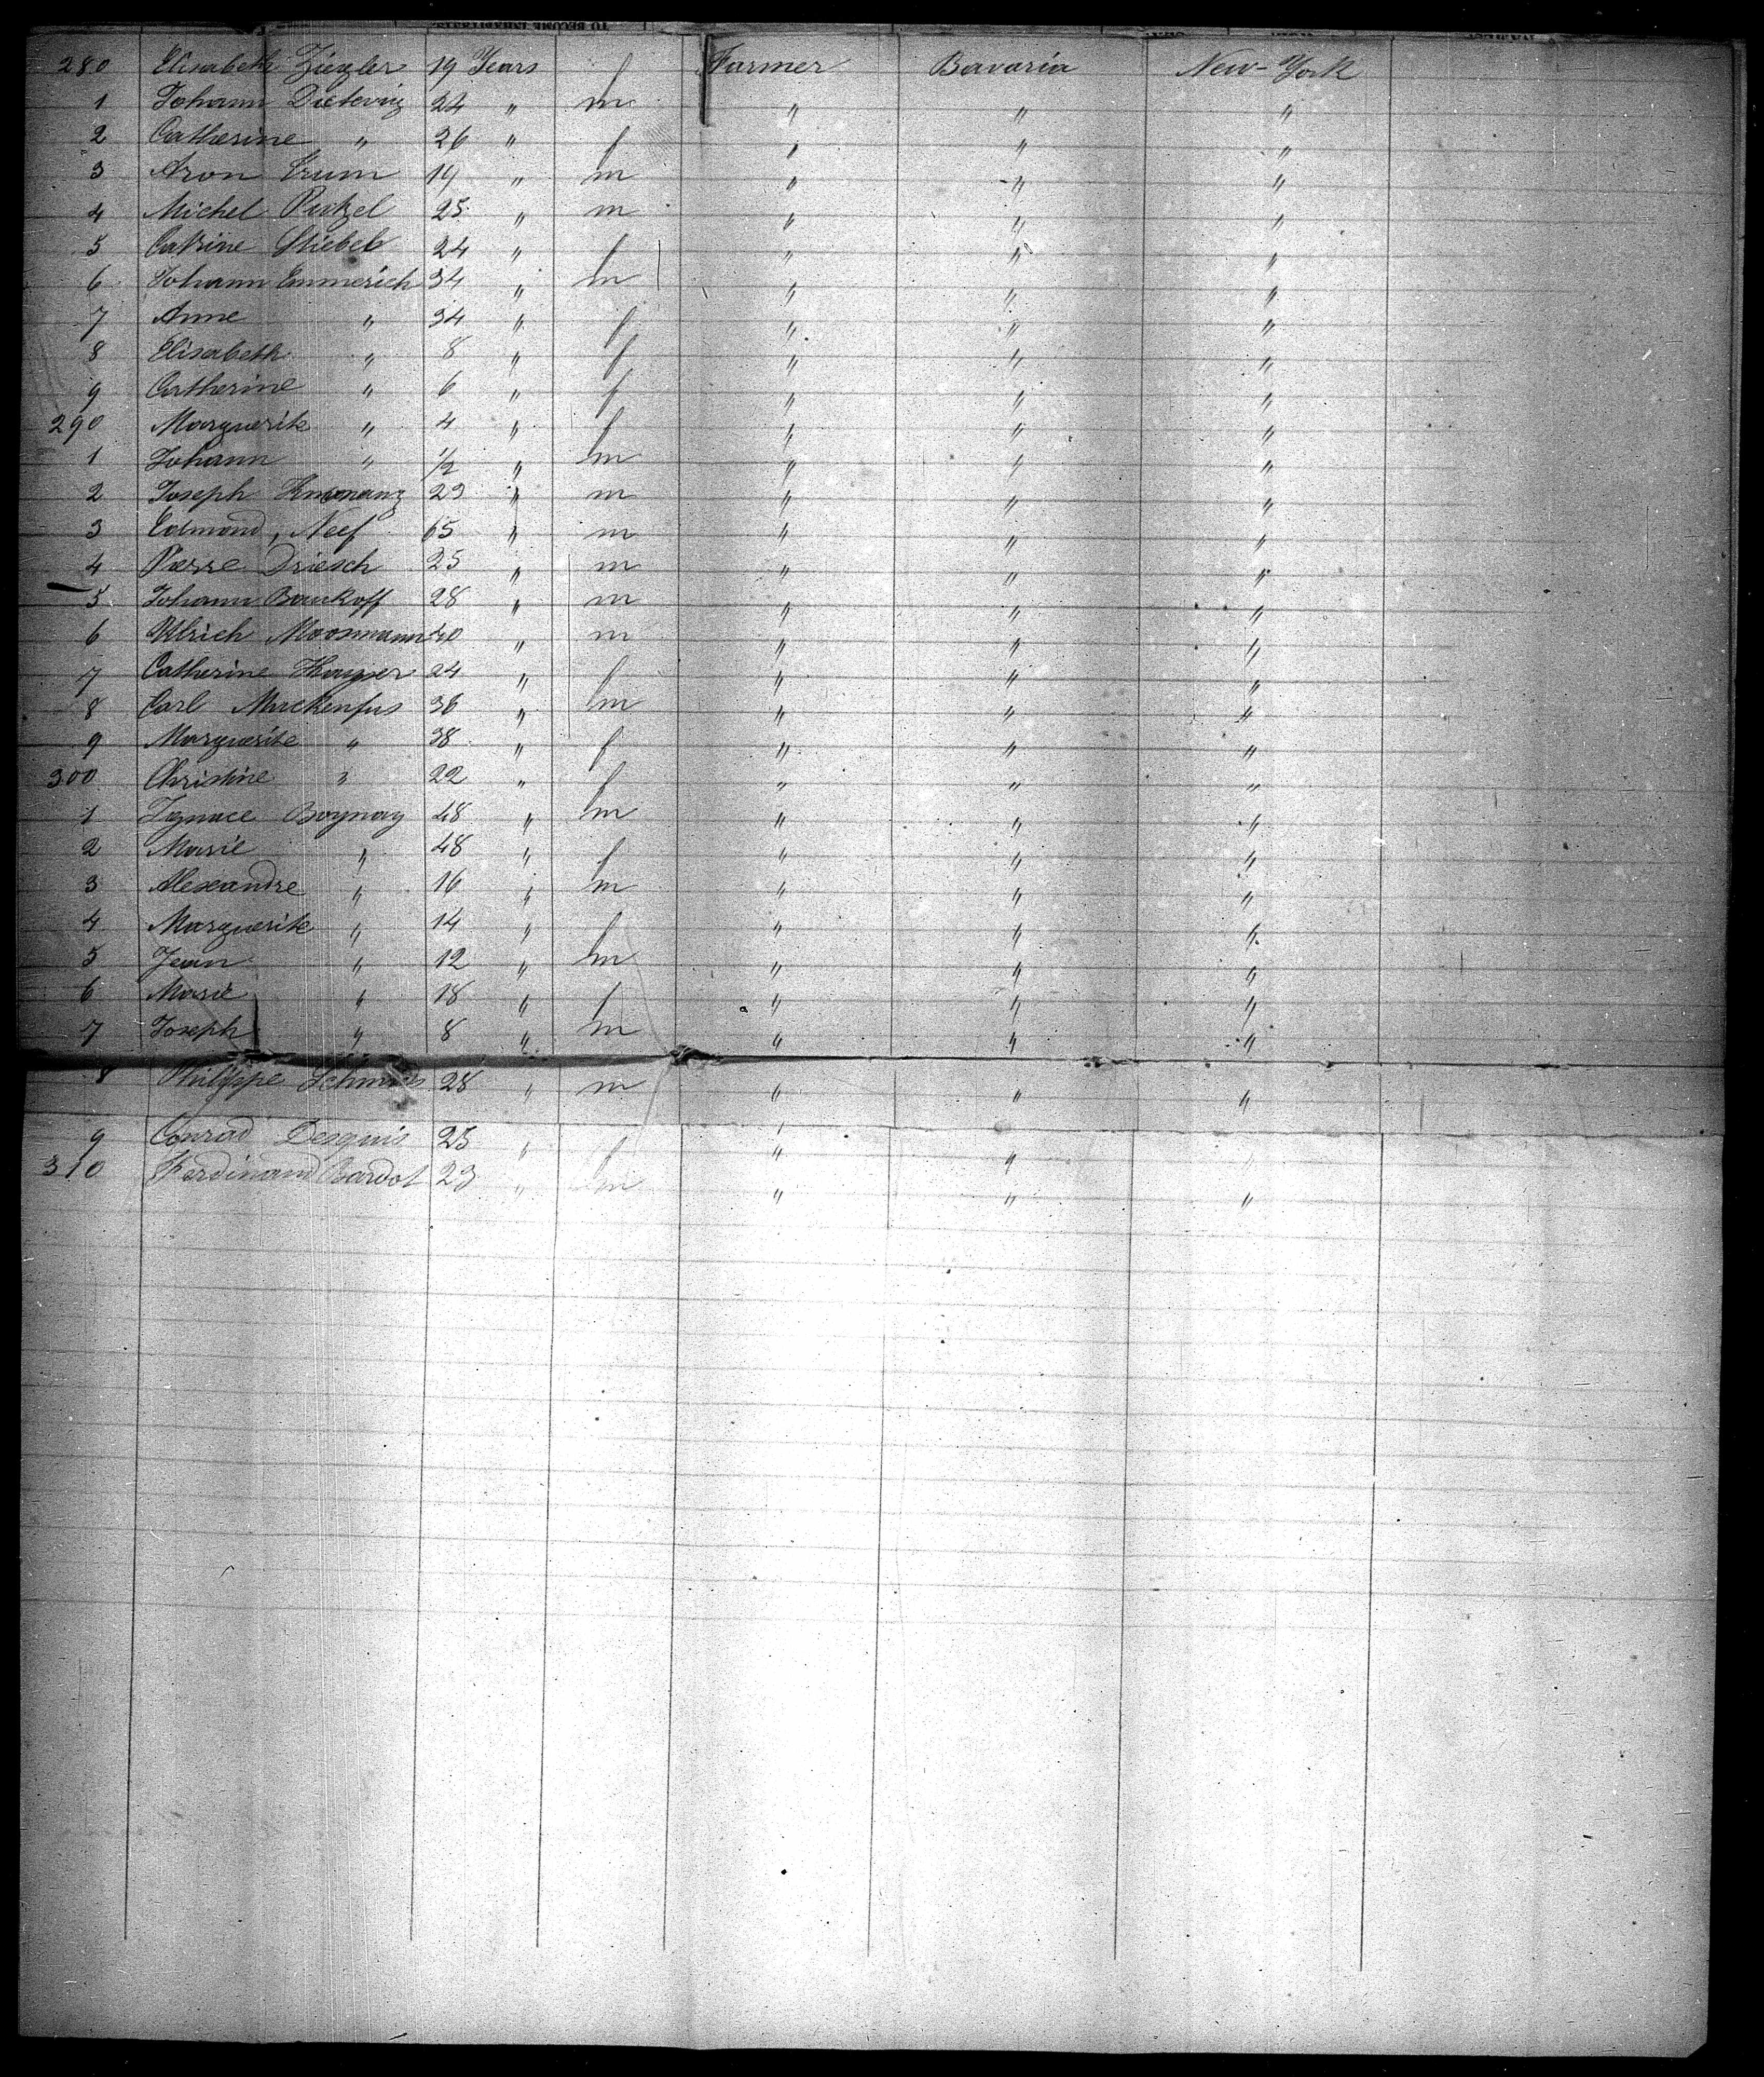 TO BECOME INHABITANTS
280 Elisabeth Ziegler 19 Years f Farmer Bavaria New-York
1 Johann 24 " m " " "
2 Catherine " 26 " f " " "
3 Aron 19 " m " " "
4 Michel 25 " m " " "
5 Catrine Stiebel 24 " f " " "
6 Johann Emmerich 34 " m " " "
7 Anne " 34 " f " " "
8 Elisabeth " 8 " f " " "
9 Catherine " 6 " f " " "
290 Marguerite " 4 " f " " "
1 Johann " 1/2 " m " " "
2 Joseph 23 " m " " "
3 Edmond, Neef 65 " m " " "
4 Pierre Driesch 25 " m " " "
5 Johann Baukoff 28 " m " " "
6 Ulrich Moosmann 40 " m " " "
7 Catherine 24 " f " " "
8 Carl Muckenfus 36 " m " " "
9 Marguerite " 38 " f " " "
300 Christine " 22 " f " " "
1 Ignace Boynay 48 " m " " "
2 Marie " 48 " f " " "
3 Alexandre " 16 " m " " "
4 Marguerite " 14 " f " " "
5 Jean " 12 " m " " "
6 Marie " 18 " f " " "
7 Joseph " 8 " m " " "
8 Philippe 28 " m " " "
9 Conrad Desquis 25 " f " " "
310 Ferdinand Bardot 23 " m " " "